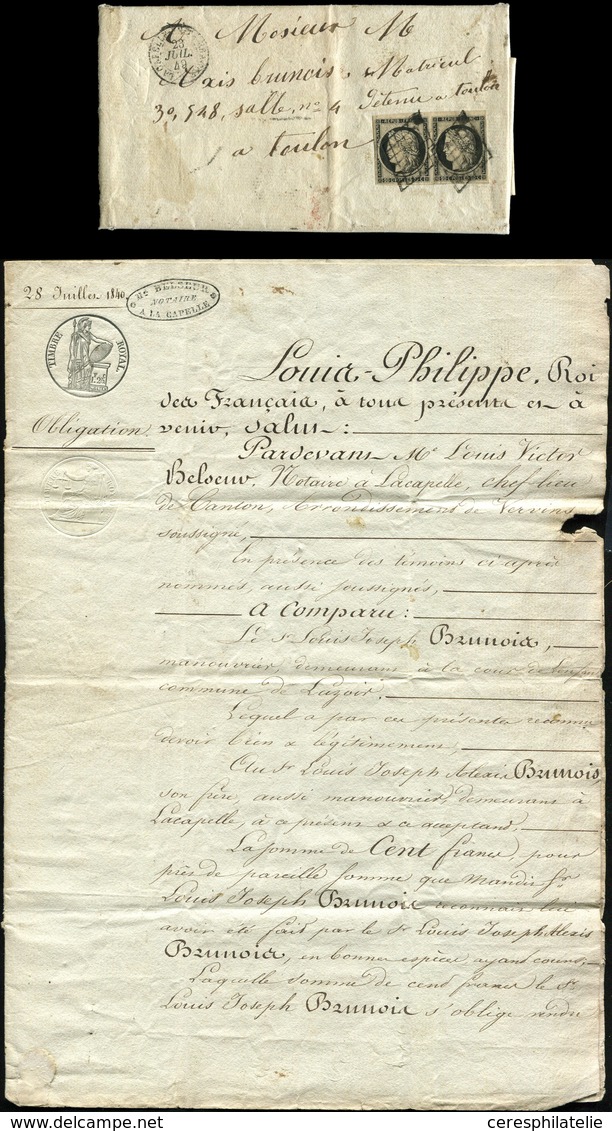 A Mosieur M
LACAPELLE
23
JUIL.
49
Alexis brunois Matricul
30,548, salle, no 4 Détenu a toulon
a toulon
REPUB. FRANC.
REPUB. FRANC.
28 Juillet 1840.
Me BELSEUR
NOTAIRE
A LA CAPELLE
TIMBRE ROYAL
Louis-Philippe, Roi
des Français, à tous présents et à
venir, salut:
Obligation.
Pardevant Me Louis Victor
Belseur, Notaire à Lacapelle, chef-lieu
de Canton, Arrondissement de Vervins
soussigné,
En présence des témoins ci après
nommés, aussi soussignés,
a comparu:
Le Sr Louis Joseph Brunois,
manouvrier, demeurant à la cour de
commune de Luzoir.
Lequel a par ces présentes reconnu
devoir bien & légitimement,
Au Sr Louis Joseph Alexis Brunois,
son frère, aussi manouvrier, demeurant à
Lacapelle, à ce présent & ce acceptant,
La somme de Cent francs, pour
prêt de pareille somme que
Louis Joseph Brunois reconnait lui
avoir été fait par le Sr Louis Joseph Alexis
Brunois, en bonnes espèces ayant cours,
Laquelle somme de cent francs le Sr
Louis Joseph Brunois s'oblige rendre
ceresphilatelie.com